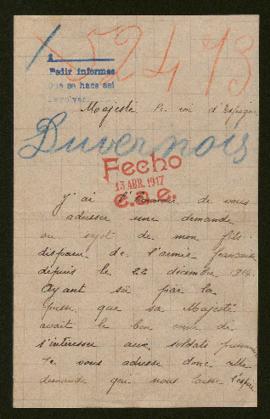 52473
A
Pedir informes
Que se hace así
Majesté le roi d'Espagne
Duvernois
Fecho
13 ABR. 1917
J'ai l'honneur de vous
adresser une demande
au sujet de mon fils
disparu de l'armée française
depuis le 22 décembre 1914.
Ayant su par la
que sa Majesté
avait le bon de
s'intéresser aux soldats
Je vous adresse donc cette
demande que nous laisse l'espoir